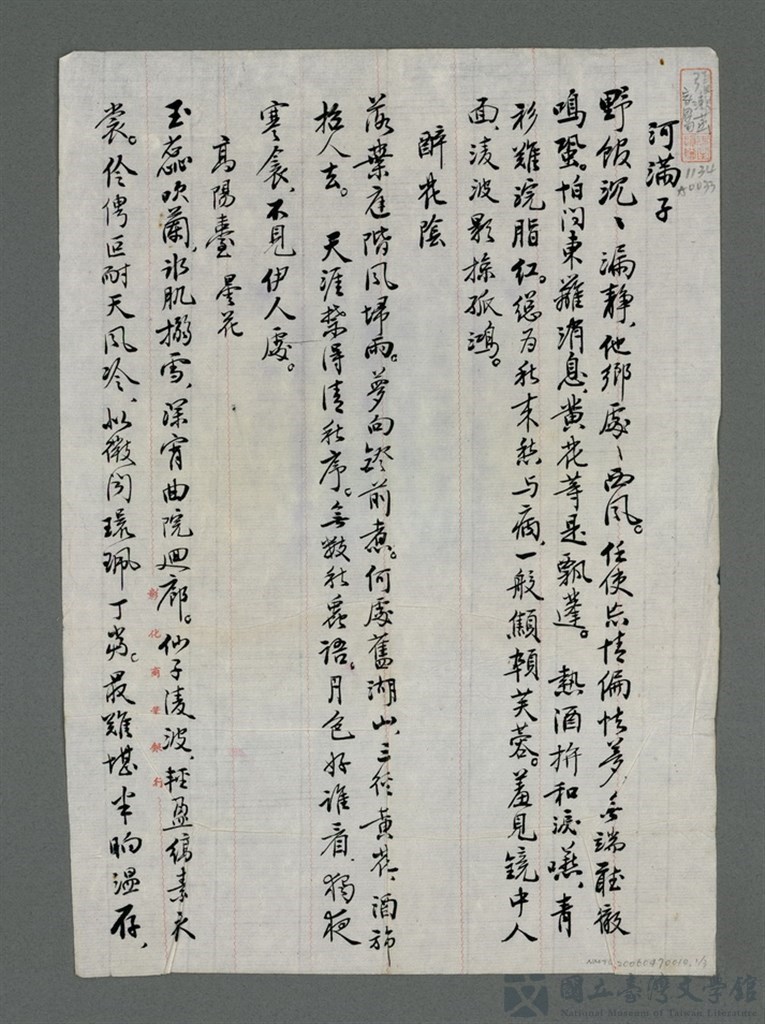 河滿子
野館沉、漏靜、他鄉處、西風。任使忘情偏怯夢、無端聽徹
鳴蛩。怕問東籬消息、黃花等是飄蓬。 熱酒拚和淚嚥、青
衫難浣脂紅。總為秋來愁与病、一般顦顇芙蓉。羞見鏡中人
面、凌波影掠孤鴻。
醉花陰
落葉庭階風埽雨。夢向鐙前煮。何處舊湖山、三徑黃花、酒旆
招人去。 天涯禁得清秋序。無数秋蟲語。月色好誰看、獨夜
寒衾、不見伊人處。
高陽臺 曇花
玉蕊吹蘭、冰肌搦雪、深宵曲院迴廊。仙子凌波、輕盈縞素衣
裳。伶俜叵耐天風冷、似微聞環珮丁當。最難堪半晌溫存、
彰化商業銀行
1134
A0033
NMTL20060470010, 1/1
國立臺灣文學館
National Museum of Taiwan Literature